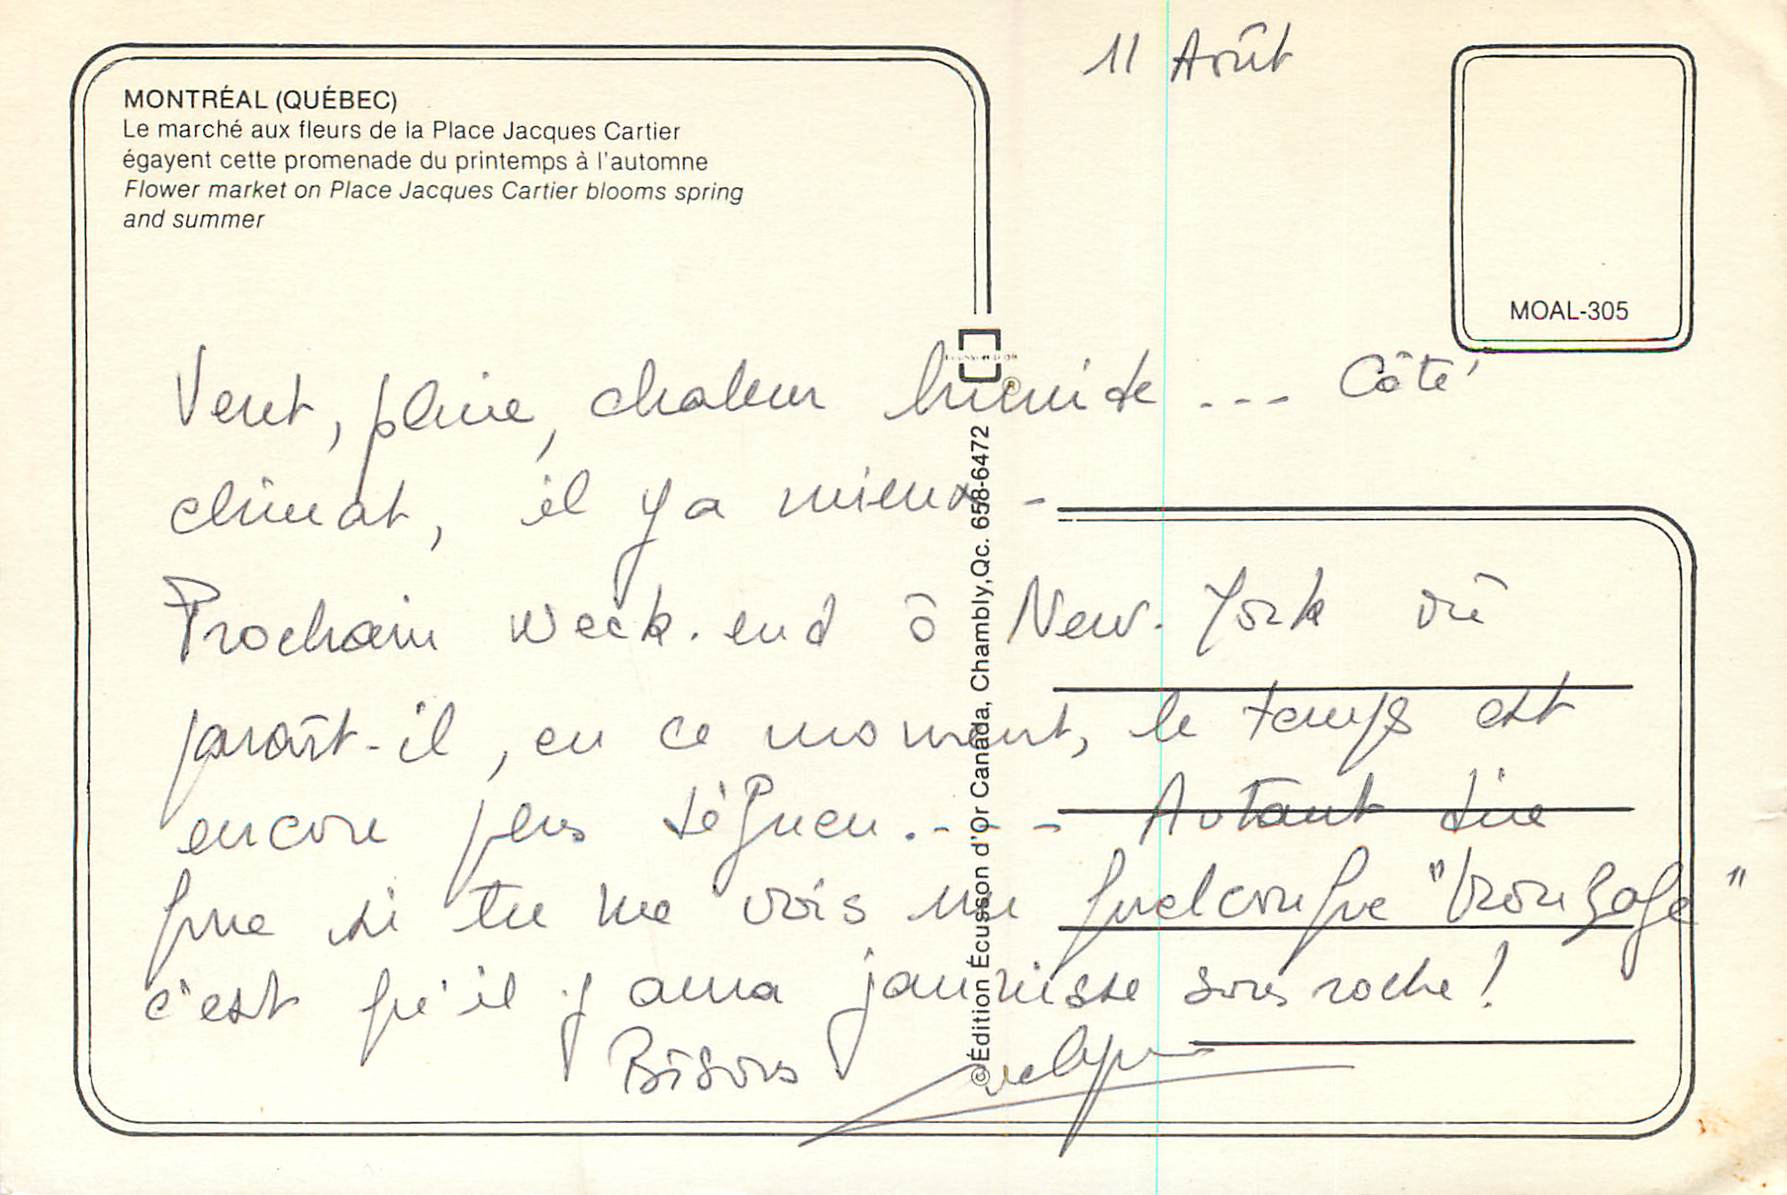 MONTRÉAL (QUÉBEC)
Le marché aux fleurs de la Place Jacques Cartier
égayent cette promenade du printemps à l'automne
Flower market on Place Jacques Cartier blooms spring
and summer
11 Août
MOAL-305
Vent, pluie, chaleur humide --- Côté
climat, il y a mieux -
Prochain week-end à New-York où
paraît-il, en ce moment, le temps est
encore plus dégueu.--- Autant dire
que si tu me vois un quelconque "bronzage"
c'est qu'il y aura jaunisse sous roche!
Bisous
© Édition Écusson d'Or Canada, Chambly, Qc. 658-6472